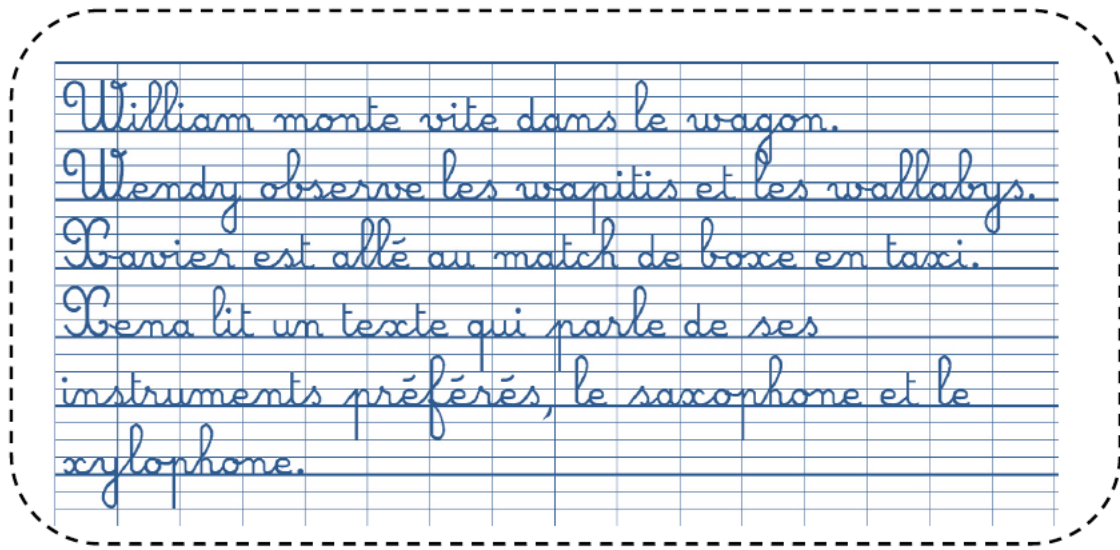 William monte vite dans le wagon.
Wendy observe les wapitis et les wallabys.
Xavier est allé au match de boxe en taxi.
Xena lit un texte qui parle de ses
instruments préférés, le saxophone et le
xylophone.